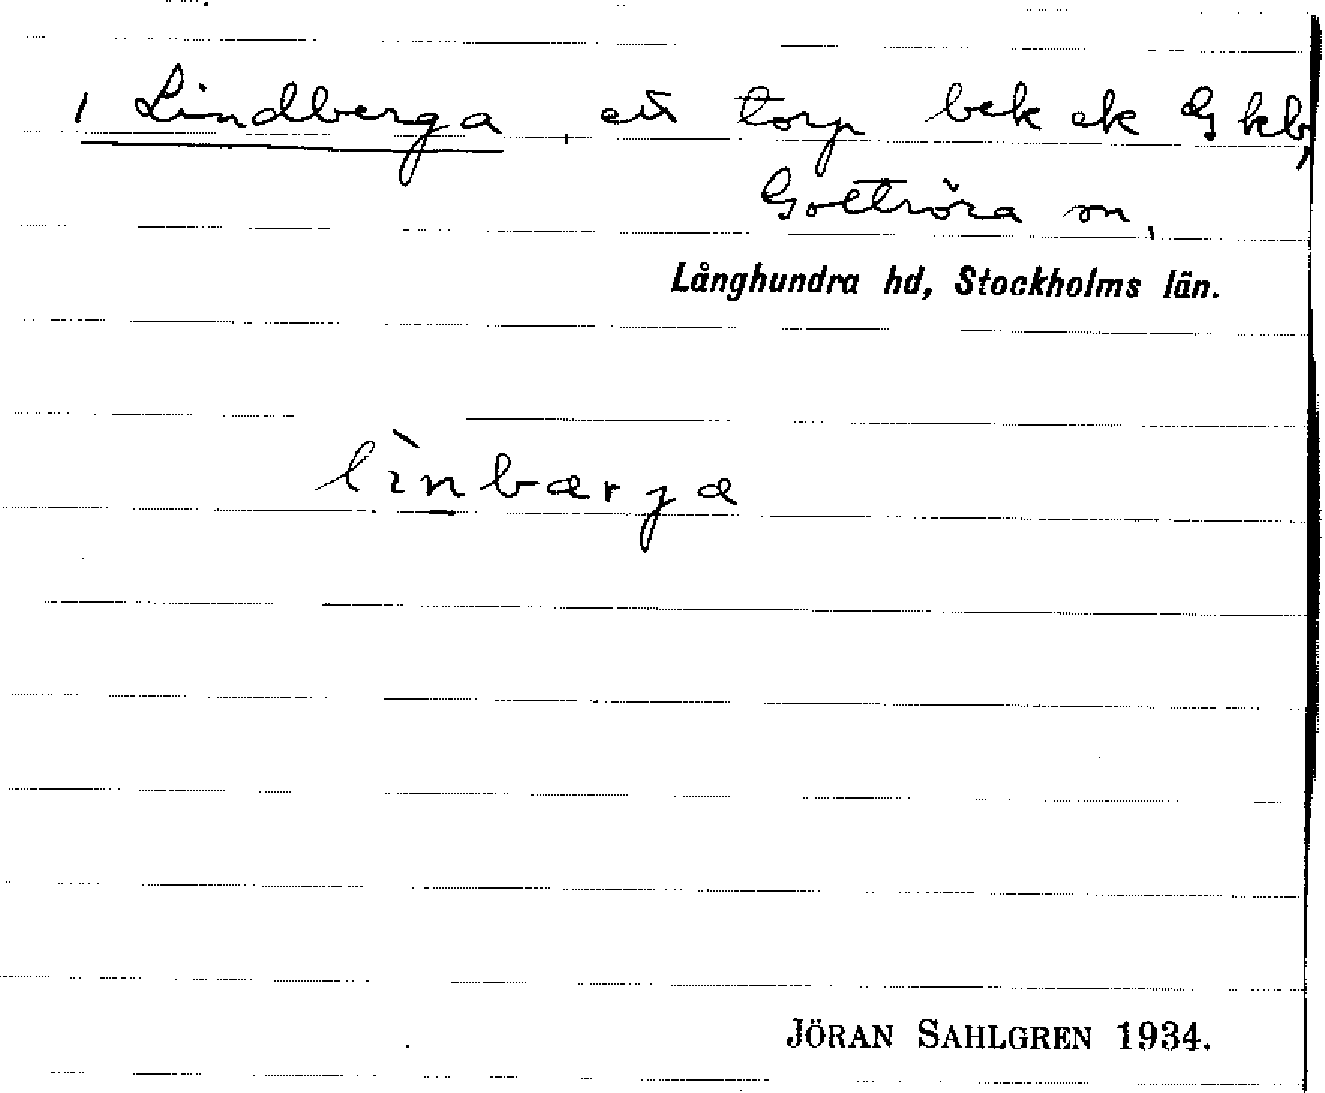 1 Lindberga, ett torp bek ek G kb,
Gottröra sn,
Långhundra hd, Stockholms län.
lìnbærja
JÖRAN SAHLGREN 1934.